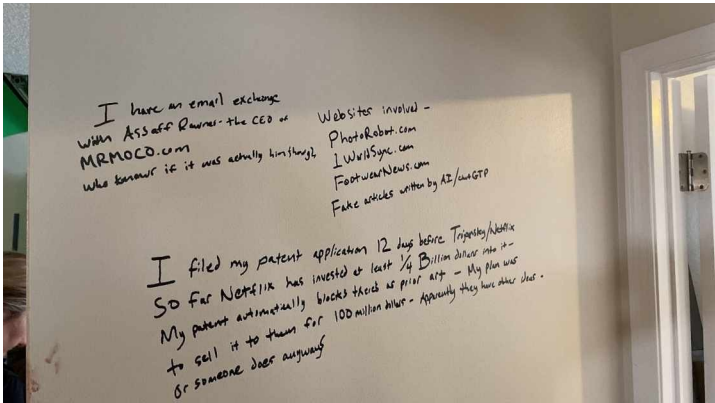 I have an email exchange
with Assaff Rawner - the CEO of
MRMOCO.com
who knows if it was actually him though,
Websites involved -
PhotoRobot.com
1WorldSync.com
FootwearNews.com
Fake articles written by AI/chatGTP
I filed my patent application 12 days before /Netflix
So far Netflix has invested at least 1/4 Billion dollars into it -
My patent automatically blocks theirs as prior art - My plan was
to sell it to them for 100 million dollars - Apparently they have other ideas.
Or someone does anyways